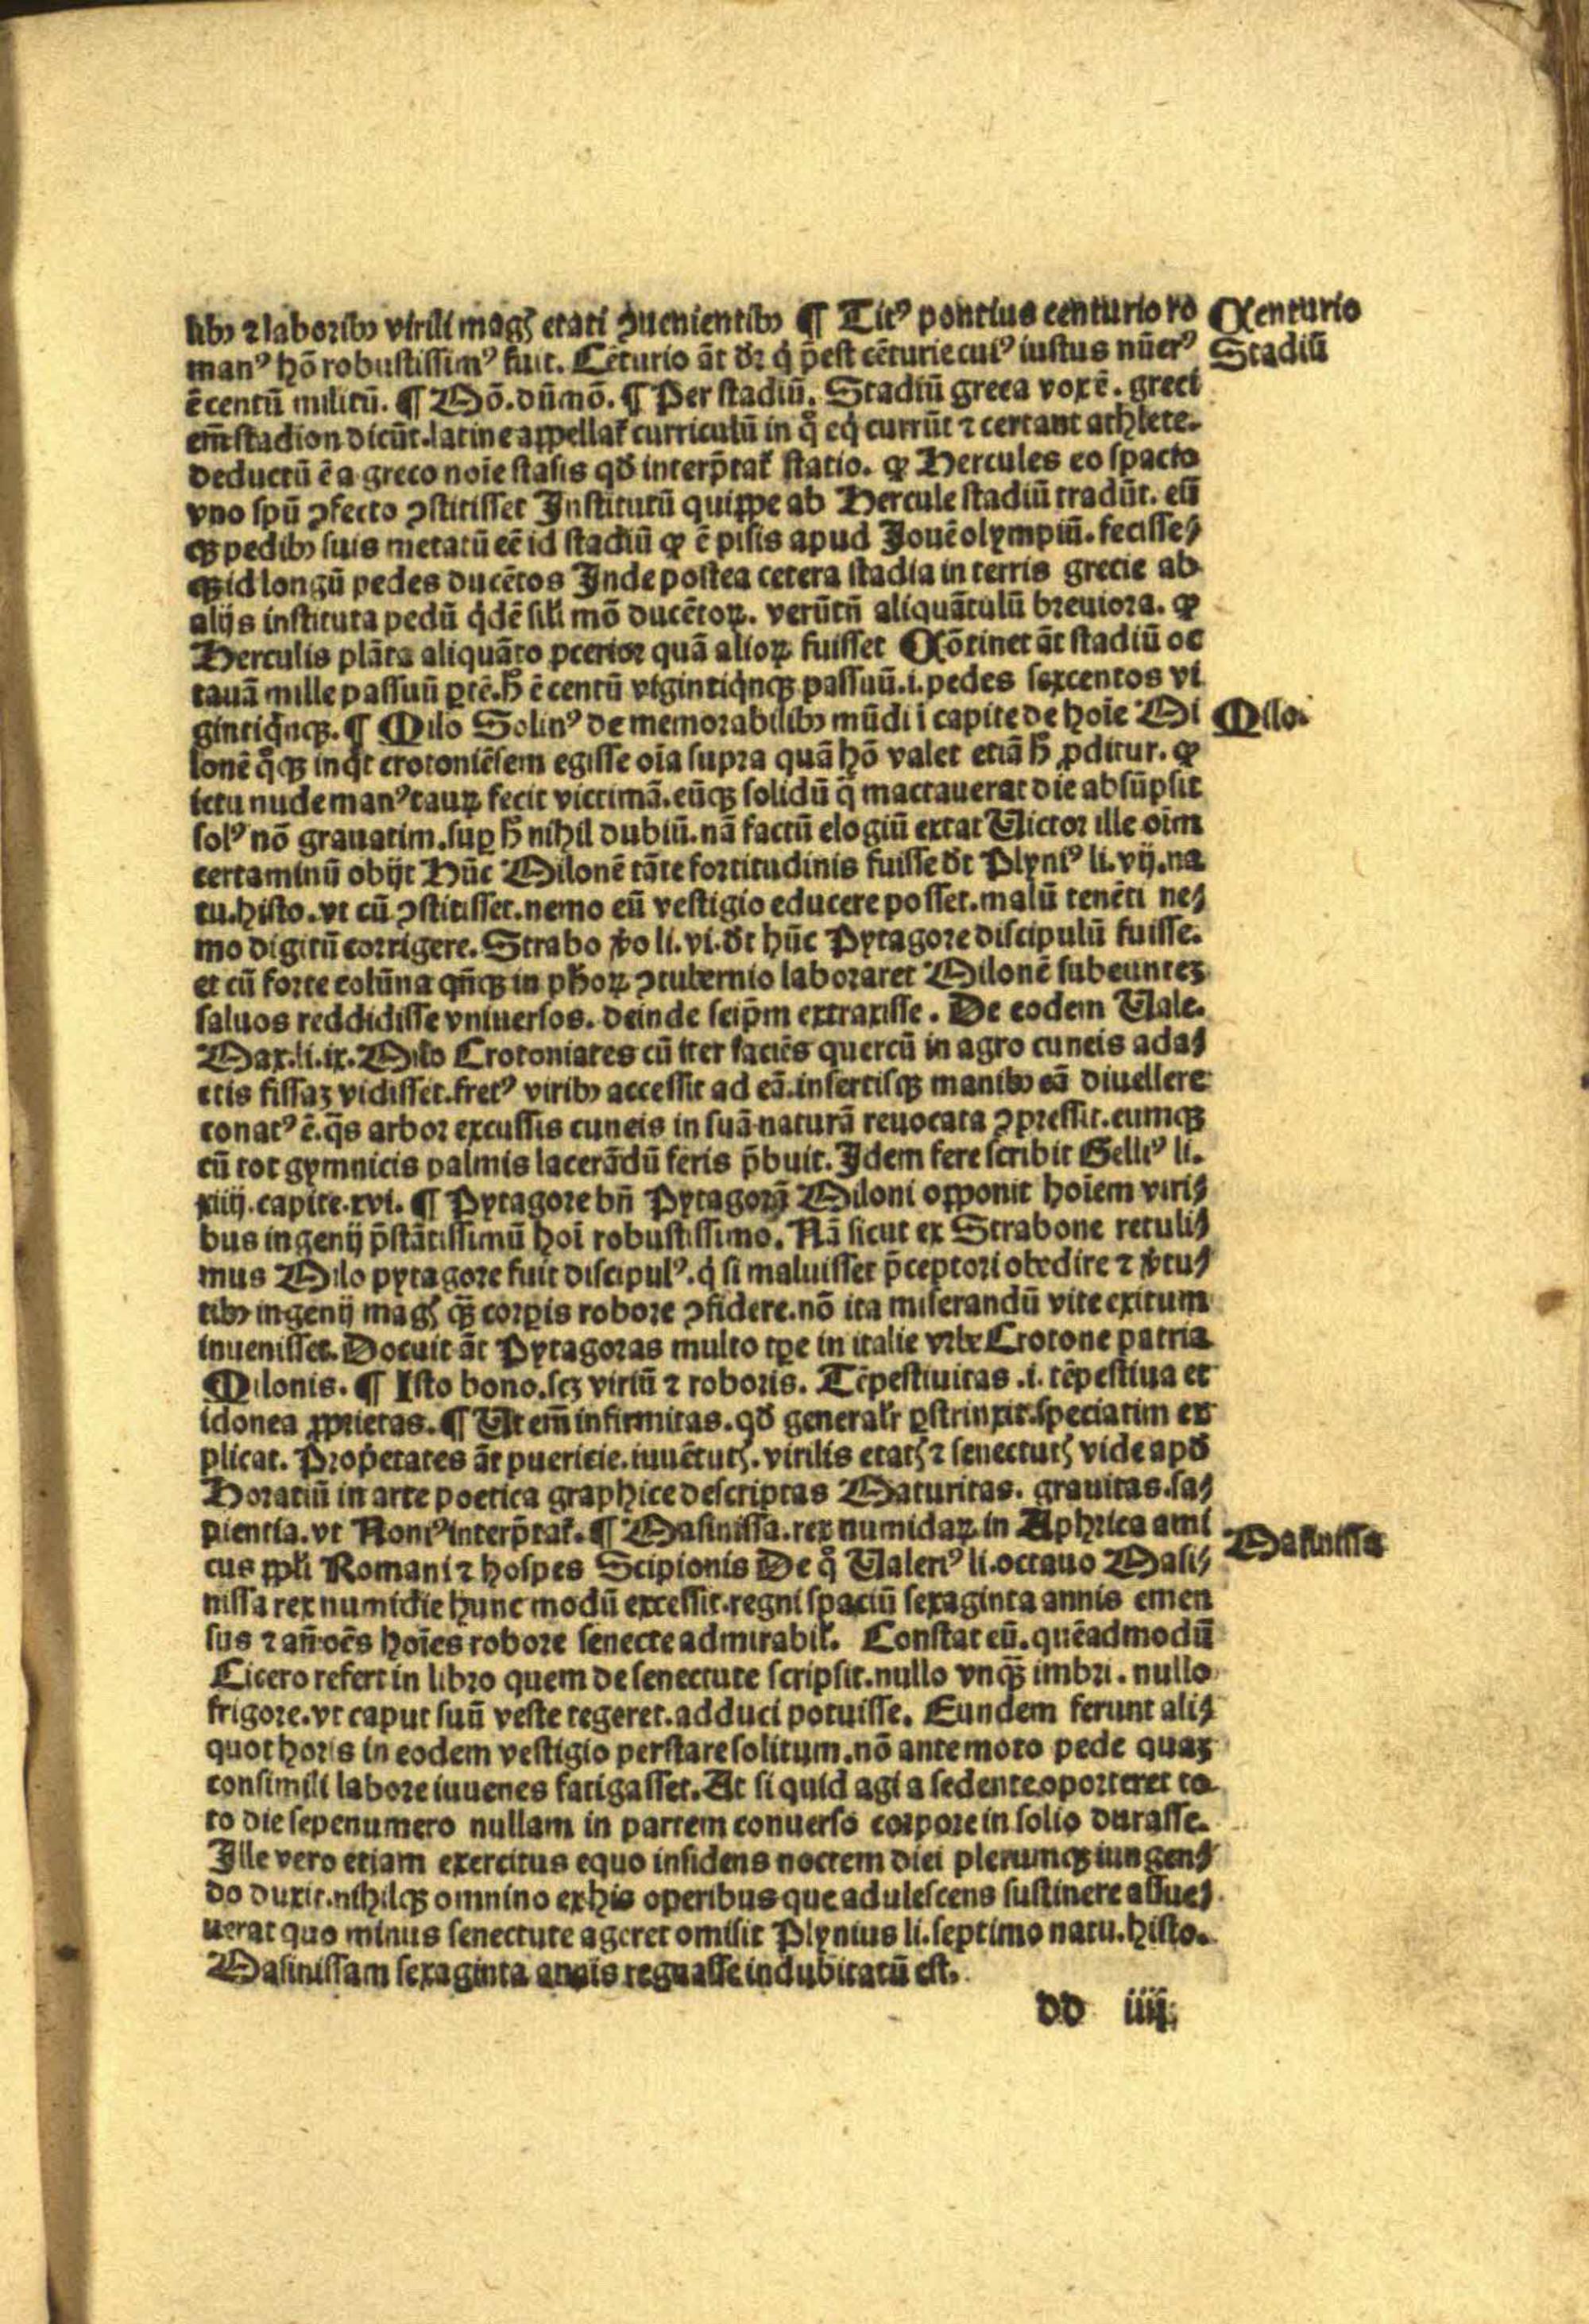 libꝰ ⁊ laboribꝰ virili magꝭ etati ꝯuenientibꝰ ¶ Titꝰ pontius centurio ro
Centurio
manꝰ hō robustissimꝰ fuit. Cēturio āt dꝛ q̇ p̄est cēturie cuiꝰ iustus nūerꝰ
Stadiū
ē centū militū. ¶ Mō. dūmō. ¶ Per stadiū. Stadiū greca vox ē. greci
em̄ stadion dicūt. latine appellat̄ curriculū in q̊ eq̇ currūt ⁊ certant athlete.
deductū ē a greco noīe stasis qd̄ interp̄tat̄ statio. ꝙ Hercules eo spacio
vno spū ꝯfecto ꝯstitisset Institutū quippe ab Hercule stadiū tradūt. eū
qꝫ pedibꝰ suis metatū eē id stadiū ꝙ ē pisis apud Iouē olympiū. fecisse⸗
qꝫ id longū pedes ducētos Inde postea cetera stadia in terris grecie ab
alijs instituta pedū q̇dē sili mō ducētoꝝ. verūtn̄ aliquātulū breuiora. ꝙ
Herculis plāta aliquāto ꝓcerior quā alioꝝ fuisset Cōtinet āt stadiū oc
tauā mille passuū ꝑtē. h̄ ē centū vigintiq̇nqꝫ passuū. i. pedes sexcentos vi
gintiq̇nqꝫ. ¶ Milo Solinꝰ de memorabilibꝰ mūdi ī capite de hoīe Mi
Milo.
lonē q̊qꝫ inq̇t crotoniēsem egisse oīa supra quā hō valet etiā h̄ ꝓditur. ꝙ
ictu nude manꝰ tauꝝ fecit victimā. eūqꝫ solidū q̄ mactauerat die absūpsit
solꝰ nō grauatim. suꝑ h̄ nihil dubiū. nā factū elogiū extat Victor ille oīm
certaminū obijt Hūc Milonē tāte fortitudinis fuisse dt̄ Plyniꝰ li. vij. na
tu. histo. vt cū ꝯstitisset. nemo eū vestigio educere posset. malū tenēti ne⸗
mo digitū corrigere. Strabo v̊o li. vi. dt̄ hūc Pytagore discipulū fuisse.
et cū forte colūna qn̄qꝫ in ph̄oꝝ ꝯtubernio laboraret Milonē subeuntez
saluos reddidisse vniuersos. deinde seip̄m extraxisse. De eodem Vale.
Max. li. ix. Milo Crotoniates cū iter faciēs quercū in agro cuneis ada⸗
ctis fissaꝫ vidisset. fretꝰ viribꝰ accessit ad eā. insertisqꝫ manibꝰ eā diuellere
conatꝰ ē. q̄s arbor excussis cuneis in suā naturā reuocata ꝯpressit. eumqꝫ
cū tot gymnicis palmis lacerādū feris p̄buit. Idem fere scribit Gelliꝰ li.
xiiij. capite. xvi. ¶ Pytagore bn̄ Pytagorā Miloni opponit hoīem viri⸗
bus ingenij p̄stātissimū hoī robustissimo. Nā sicut ex Strabone retuli⸗
mus Milo pytagore fuit discipulꝰ. q̇ si maluisset p̄ceptori obedire ⁊ v̊tu⸗
tibꝰ ingenij magꝭ qꝫ̄ corꝑis robore ꝯfidere. nō ita miserandū vite exitum
inuenisset. Docuit āt Pytagoras multo tꝑe in italie vrbe Crotone patria
Milonis. ¶ Isto bono. scꝫ viriū ⁊ roboris. Tēpestiuitas .i. tēpestiua et
idonea ꝓprietas. ¶ Vt em̄ infirmitas. qd̄ general̄r ꝑstrinxit. speciatim ex
plicat. Propetates āt puericie. iuuētutꝭ. virilis etatꝭ ⁊ senectutꝭ vide apd̄
Horatiū in arte poetica graphice descriptas Maturitas. grauitas. sa⸗
pientia. vt Noniꝰ interp̄tat̄. ¶ Masinissa. rex numidaꝝ in Aphrica ami
Masinissa
cus ppl̄i Romani ⁊ hospes Scipionis De q̊ Valeriꝰ li. octauo Masi⸗
nissa rex numidie hunc modū excessit. regni spaciū sexaginta annis emen
sus ⁊ an̄ oēs hoīes robore senecte admirabil̄. Constat eū. quēadmodū
Cicero refert in libro quem de senectute scripsit. nullo vnqꝫ̄ imbri. nullo
frigore. vt caput suū veste tegeret. adduci potuisse. Eundem ferunt ali⸗
quot horis in eodem vestigio perstare solitum. nō ante moto pede quaꝫ
consimili labore iuuenes fatigasset. At si quid agi a sedente oporteret to
to die sepenumero nullam in partem conuerso corpore in solio durasse.
Ille vero etiam exercitus equo insidens noctem diei plerumqꝫ iungen⸗
do duxit. nihilqꝫ omnino ex his operibus que adulescens sustinere assue⸗
uerat quo minus senectute ageret omisit Plynius li. septimo natu. histo.
Masinissam sexaginta annis regnasse indubitatū est.
dd iiij.